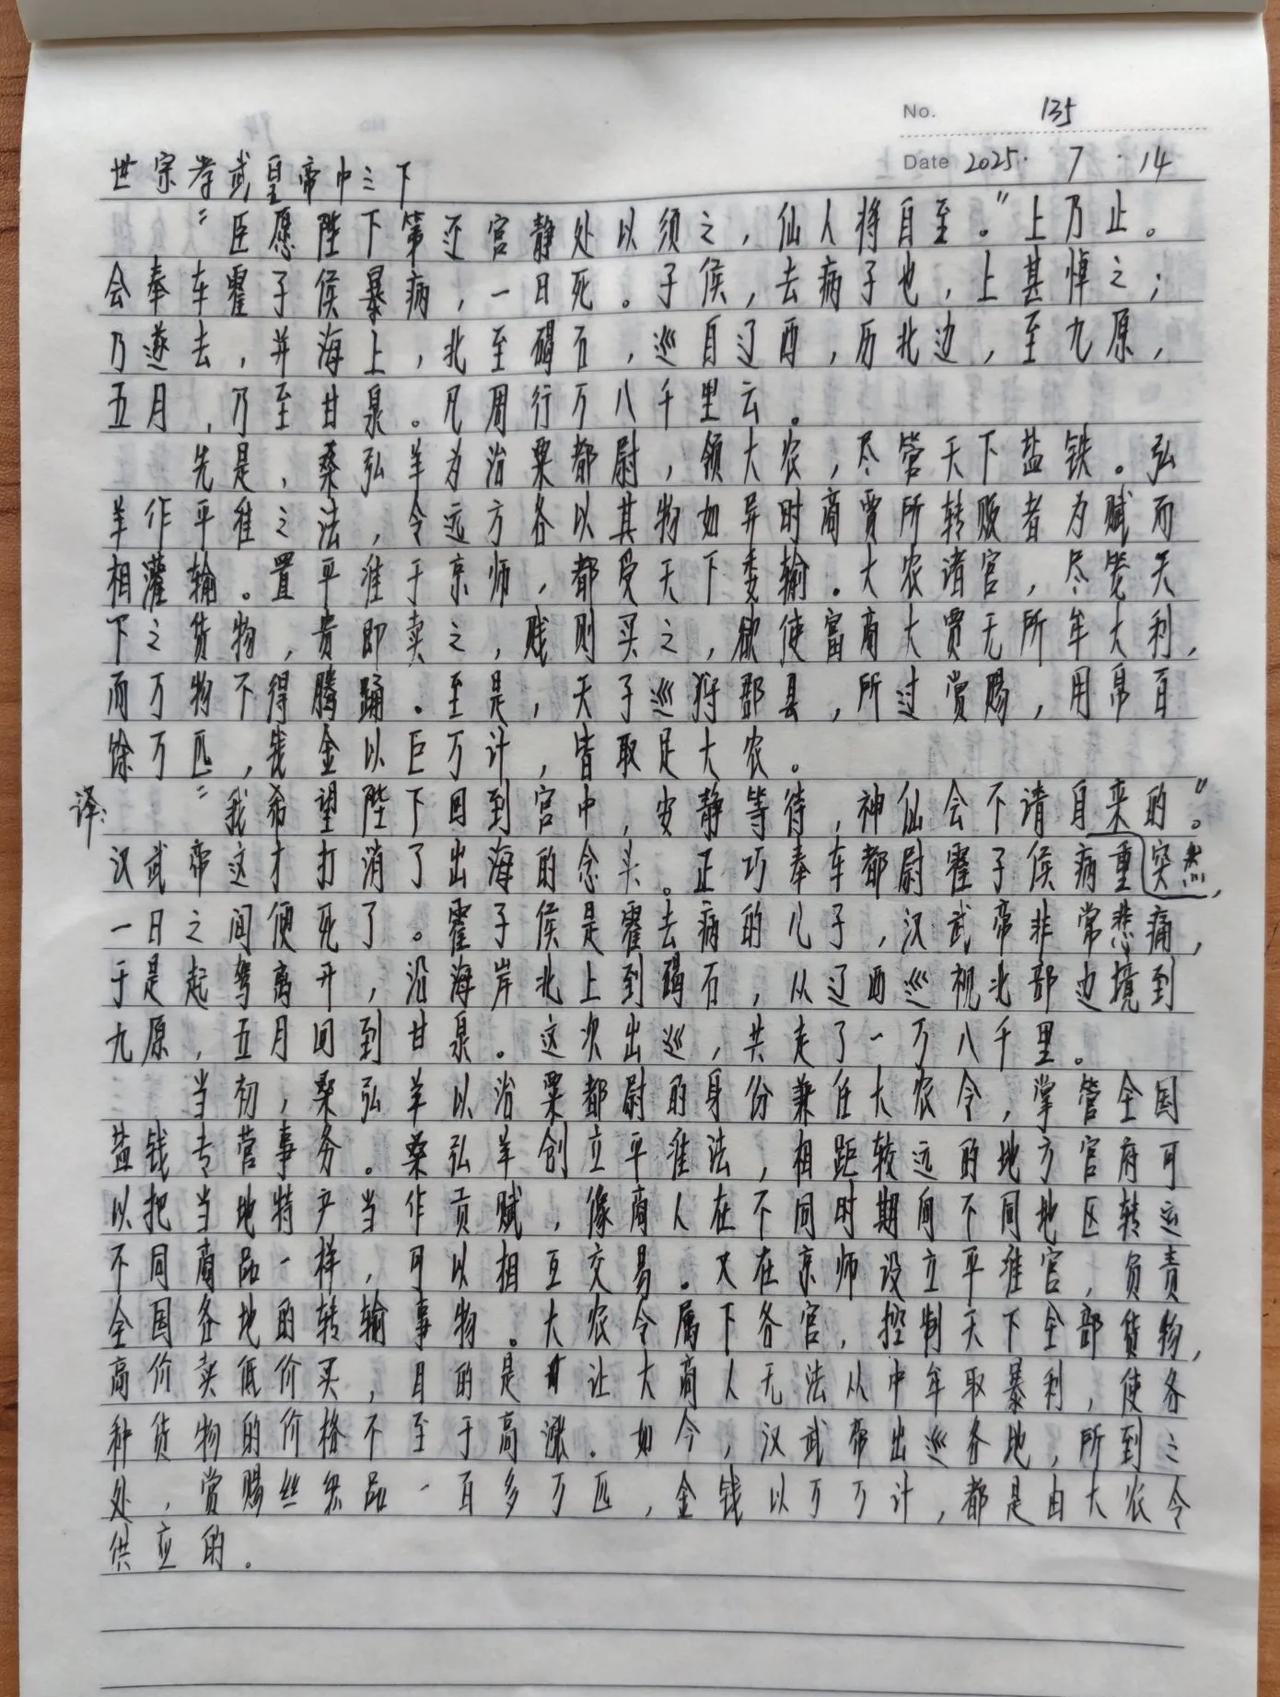 No. 135
Date 2025. 7. 14
世宗孝武皇帝中之下
“臣愿陛下第还宫静处以须之，仙人将自至。”上乃止。
会奉车霍子侯暴病，一日死。子侯，去病子也，上甚悼之；
乃遂去，并海上，北至碣石，巡自辽西，历北边，至九原，
五月，乃至甘泉。凡周行万八千里云。
先是，桑弘羊为治粟都尉，领大农，尽管天下盐铁。弘
羊作平准之法，令远方各以其物如异时商贾所转贩者为赋而
相灌输。置平准于京师，都受天下委输。大农诸官，尽笼天
下之货物，贵即卖之，贱则买之，欲使富商大贾无所牟大利，
而万物不得腾踊。至是，天子巡狩郡县，所过赏赐，用帛百
馀万匹，钱金以巨万计，皆取足大农。
译：“我希望陛下回到宫中，安静等待，神仙会不请自来的。”
汉武帝这才打消了出海的念头。正巧奉车都尉霍子侯病重突然，
一日之间便死了。霍子侯是霍去病的儿子，汉武帝非常悲痛，
于是起驾离开，沿海岸北上到碣石，从辽西巡视北部边境到
九原，五月回到甘泉。这次出巡，共走了一万八千里。
当初，桑弘羊以治粟都尉的身份兼任大农令，掌管全国
盐钱专营事务。桑弘羊创立平准法，相距较远的地方官府可
以把当地特产当作贡赋，像商人在不同时期向不同地区转运
不同商品一样，可以相互交易。又在京师设立平准官，负责
全国各地的转输事物。大农令属下各官，控制天下全部货物，
高价卖低价买，目的是让大商人无法从中牟取暴利，使各
种货物的价格不至于高涨。如今，汉武帝出巡各地，所到之
处，赏赐丝织品一百多万匹，金钱以万万计，都是由大农令
供应的。